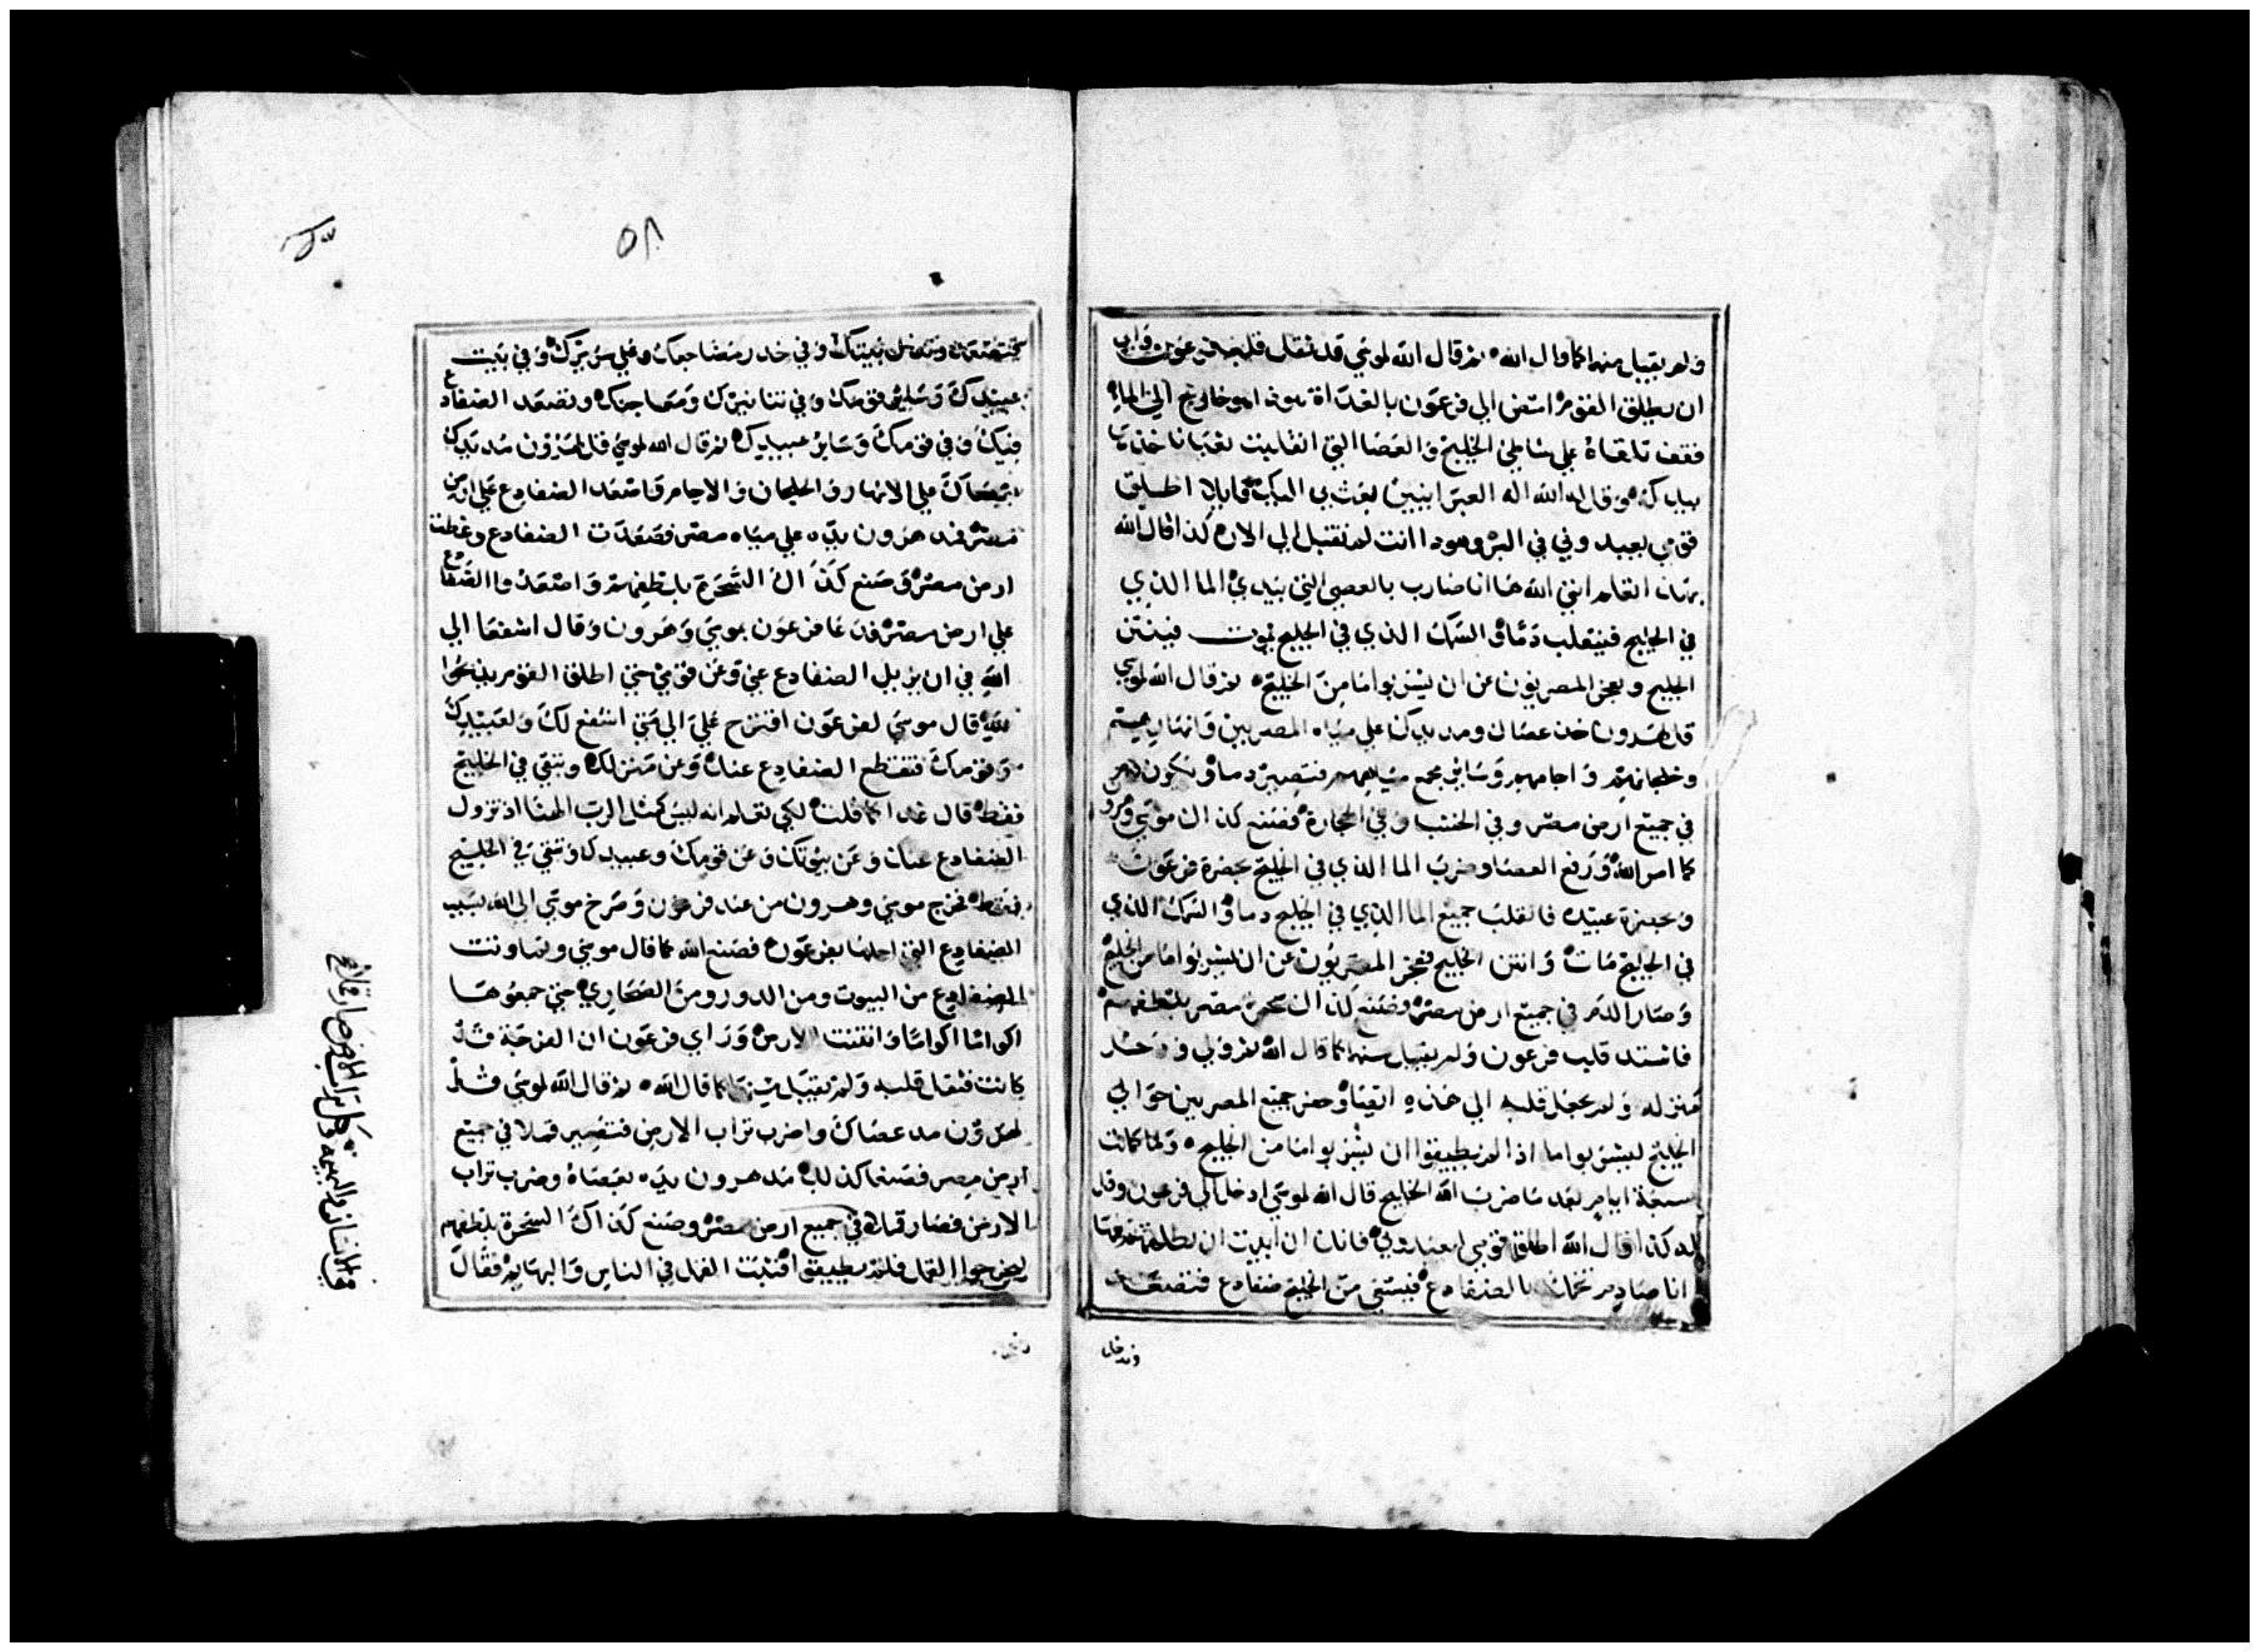 ولم يقبل منهما كما قال الله ثم قال الله لموسي قد ثقل قلب فرعون وابي
ان يطلق القوم امض الي فرعون بالغداة هوذا هو خارج الي الماء
فقف تلقاه علي شاطئ الخليج والعصا التي انقلبت ثعبانا خذها
بيدك وقال له الله اله العبرانيين بعث بي اليك قايلا اطلق
قومي يعبدوني في البر وهوذا انت لم تقبل الي الان كذا قال الله
بهذا تعلم انني الله ها انا ضارب بالعصي التي بيدي الما الذي
في الخليج فينقلب دما والسمك الذي في الخليج يموت فينتن
الخليج ويعجز المصريون عن ان يشربوا ما من الخليج ثم قال الله لموسي
قل لهرون خذ عصاك ومد يدك علي مياه المصريين وانهارهم
وخلجانهم واجامهم وساير مجمع مياههم فتصير دما ويكون الدم
في جميع ارض مصر وفي الخشب وفي الحجارة فصنع كذلك موسي وهرون
كما امر الله ورفع العصا وضرب الما الذي في الخليج بحضرة فرعون
وبحضرة عبيده فانقلب جميع الما الذي في الخليج دما والسمك الذي
في الخليج مات وانتن الخليج فعجز المصريون عن ان يشربوا ما من الخليج
وصار الدم في جميع ارض مصر وصنع كذلك سحرة مصر بلطفهم
فاشتد قلب فرعون ولم يقبل منهما كما قال الله ثم ولي ودخل
منزله ولم يجعل قلبه الي هذه ايضا وحفر جميع المصريين حوالي
الخليج ليشربوا ما اذا لم يطيقوا ان يشربوا ما من الخليج ولما كانت
سبعة ايام بعد ما ضرب الله الخليج قال الله لموسي ادخل الي فرعون وقل
له كذا قال الله اطلق قومي ليعبدوني فانك ان ابيت ان تطلقهم فها
انا صادم تخمك بالضفادع فيسعي من الخليج ضفادع فتصعد
وتدخل
فتصعد وتدخل بيتك وفي خدر مضاجعك وعلي سريرك وفي بيت
عبيدك وساير قومك وفي تنانيرك ومعاجنك وتصعد الضفادع
فيك وفي قومك وساير عبيدك ثم قال الله لموسي قل لهرون مد يدك
بعصاك علي الانهار والخلجان والاجام واصعد الضفادع علي ارض
مصر فمد هرون يده علي مياه مصر فصعدت الضفادع وغطت
ارض مصر وصنع كذلك السحرة بلطفهم واصعدوا الضفادع
علي ارض مصر فدعا فرعون بموسي وهرون وقال اشفعا الي
الله في ان يزيل الضفادع عني وعن قومي حتي اطلق القوم يذبحوا
لله قال موسي لفرعون اقترح علي الي متي اشفع لك ولعبيدك
ولقومك فتقطع الضفادع عنك وعن منزلك وتبقي في الخليج
فقط قال غدا قال كما قلت لكي تعلم انه ليس كمثل الرب الهنا اذ تزول
الضفادع عنك وعن بيوتك وعن قومك وعبيدك وتبقي في الخليج
فقط فخرج موسي وهرون من عند فرعون وصرخ موسي الي الله بسبب
الضفادع التي احلها بفرعون فصنع الله كما قال موسي وتماوتت
الضفادع من البيوت ومن الدور ومن الصحاري حتي جمعوها
اكواما اكواما وانتنت الارض وراي فرعون ان الفرجة قد
كانت فثقل قلبه ولم يقبل منهما كما قال الله ثم قال الله لموسي قل
لهرون مد عصاك واضرب تراب الارض فتصير قملا في جميع
ارض مصر فصنعا كذلك مد هرون يده بعصاه وضرب تراب
الارض فصار قملا في جميع ارض مصر وصنع كذلك السحرة بلطفهم
ليخرجوا القمل فلم يطيقوا فثبتت القمل في الناس والبهايم فقال
في الانسان والبهيمة وكل تراب الارض صار قملا
٥٨